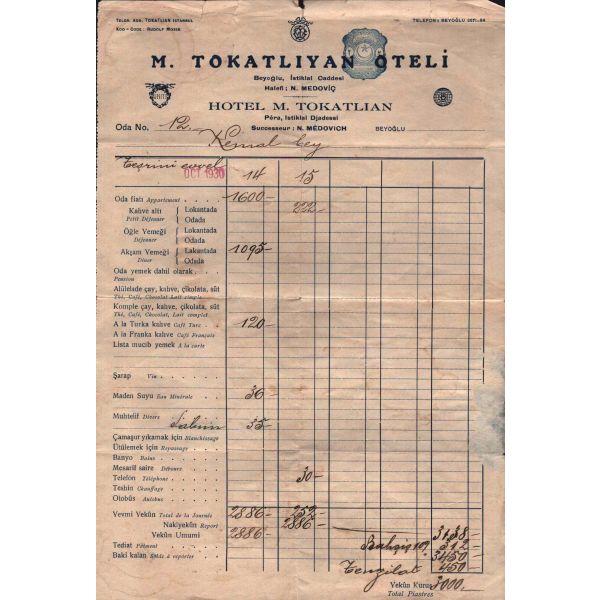 TELGR. ADR. TOKATLIAN ISTANBUL
KOD - CODE : RUDOLF MOSSE
TELEFON : BEYOĞLU
M. TOKATLIYAN OTELİ
Beyoğlu, İstiklal Caddesi
Halefi : N. MEDOVİÇ
HOTEL M. TOKATLIAN
Péra, Istiklal Djadessi
Successeur : N. MÉDOVICH
Oda No. 12. BEYOĞLU
Kemal bey
Teşrini evvel 14 15
OCT 1930
Oda fiatı Appartement 1600-
Kahve altı Lokantada 222-
Petit Déjeuner Odada
Öğle Yemeği Lokantada
Déjeuner Odada
Akşam Yemeği Lakantada 1095-
Diner Odada
Oda yemek dahil olarak
Pension
Alülelade çay, kahve, çikolata, süt
Thé, Café, Chocolat Lait simple
Komple çay, kahve, çikolata, süt
Thé, Café, Chocolat, Lait complet
A la Turka kahve Café Turc 120-
A la Franka kahve Café Français
Lista mucib yemek A la carte
Şarap Vin
Maden Suyu Eau Minérale 36-
Muhtelif Divers Sabun 35-
Çamaşur yıkamak için Blanchissage
Ütülemek için Repassage
Banyo Bains
Mesarif saire Débours
Telefon Téléphone 30-
Teshin Chauffage
Otobüs Autobus
Yevmi Yekûn Total de la Journée 2886- 252-
Nakiyekûn Report 2886-
Yekûn Umumi 2886- 3138-
Tediat Pâiment Bahşiş 10% 312
Baki kalan Solde à reporter 3450
Tenzilat 450
Yekûn Kuruş 3000.-
Total Piastres